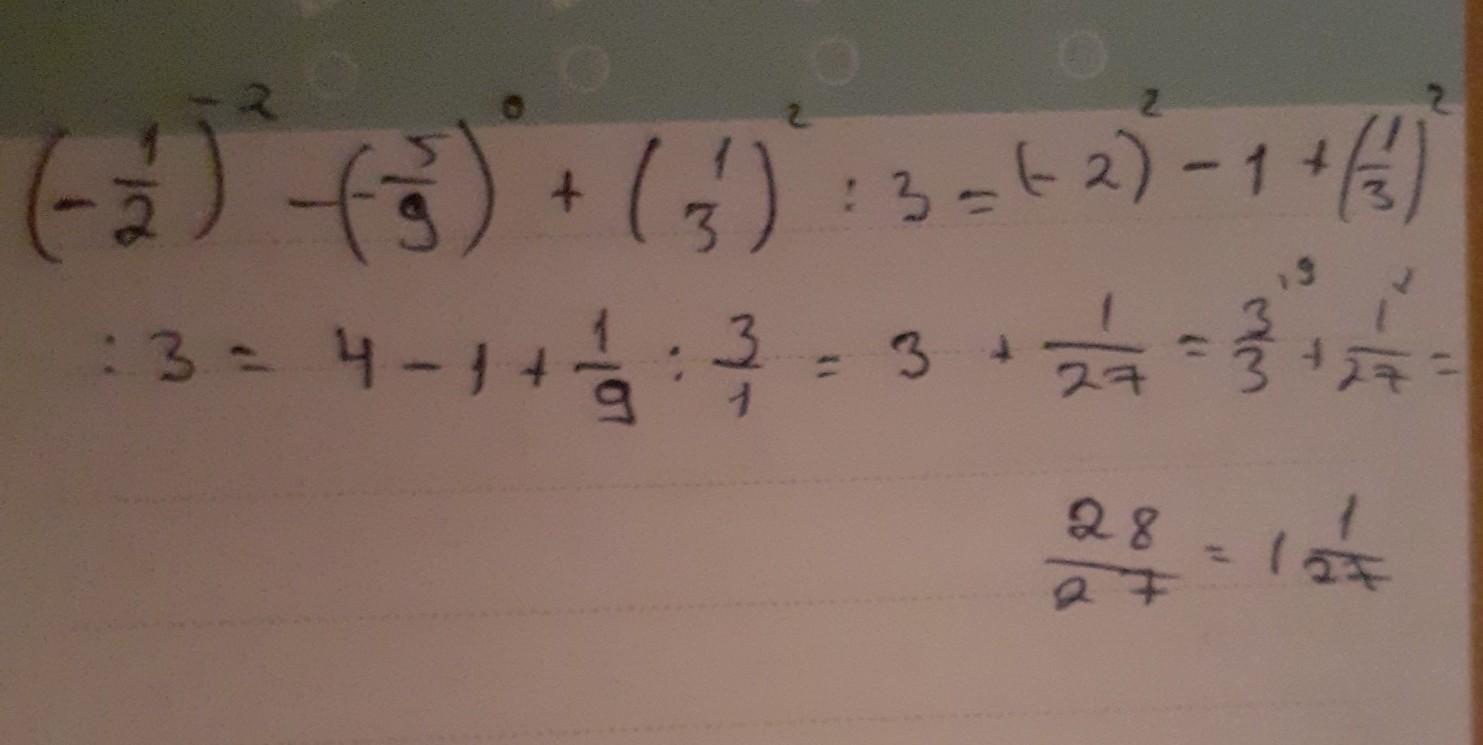 (-1/2)^-2 -(-5/9)^0 + (1 3)^2 : 3 = (-2)^2 - 1 + (1/3)^2
: 3 = 4 - 1 + 1/9 : 3/1 = 3 + 1/27 = 3/3 ^9 + 1/27 ^1 =
28/27 = 1 1/27